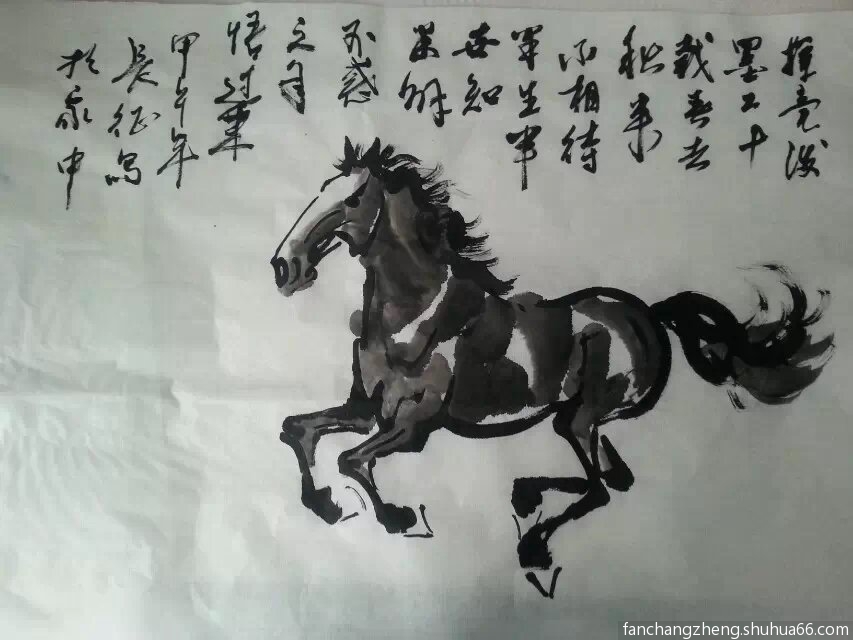 挥毫泼
墨二十
载春去
秋来
不相待
生半
世知
解
不惑
之年
悟过来
甲午年
長征写
於家中
fanchangzheng.shuhua66.com